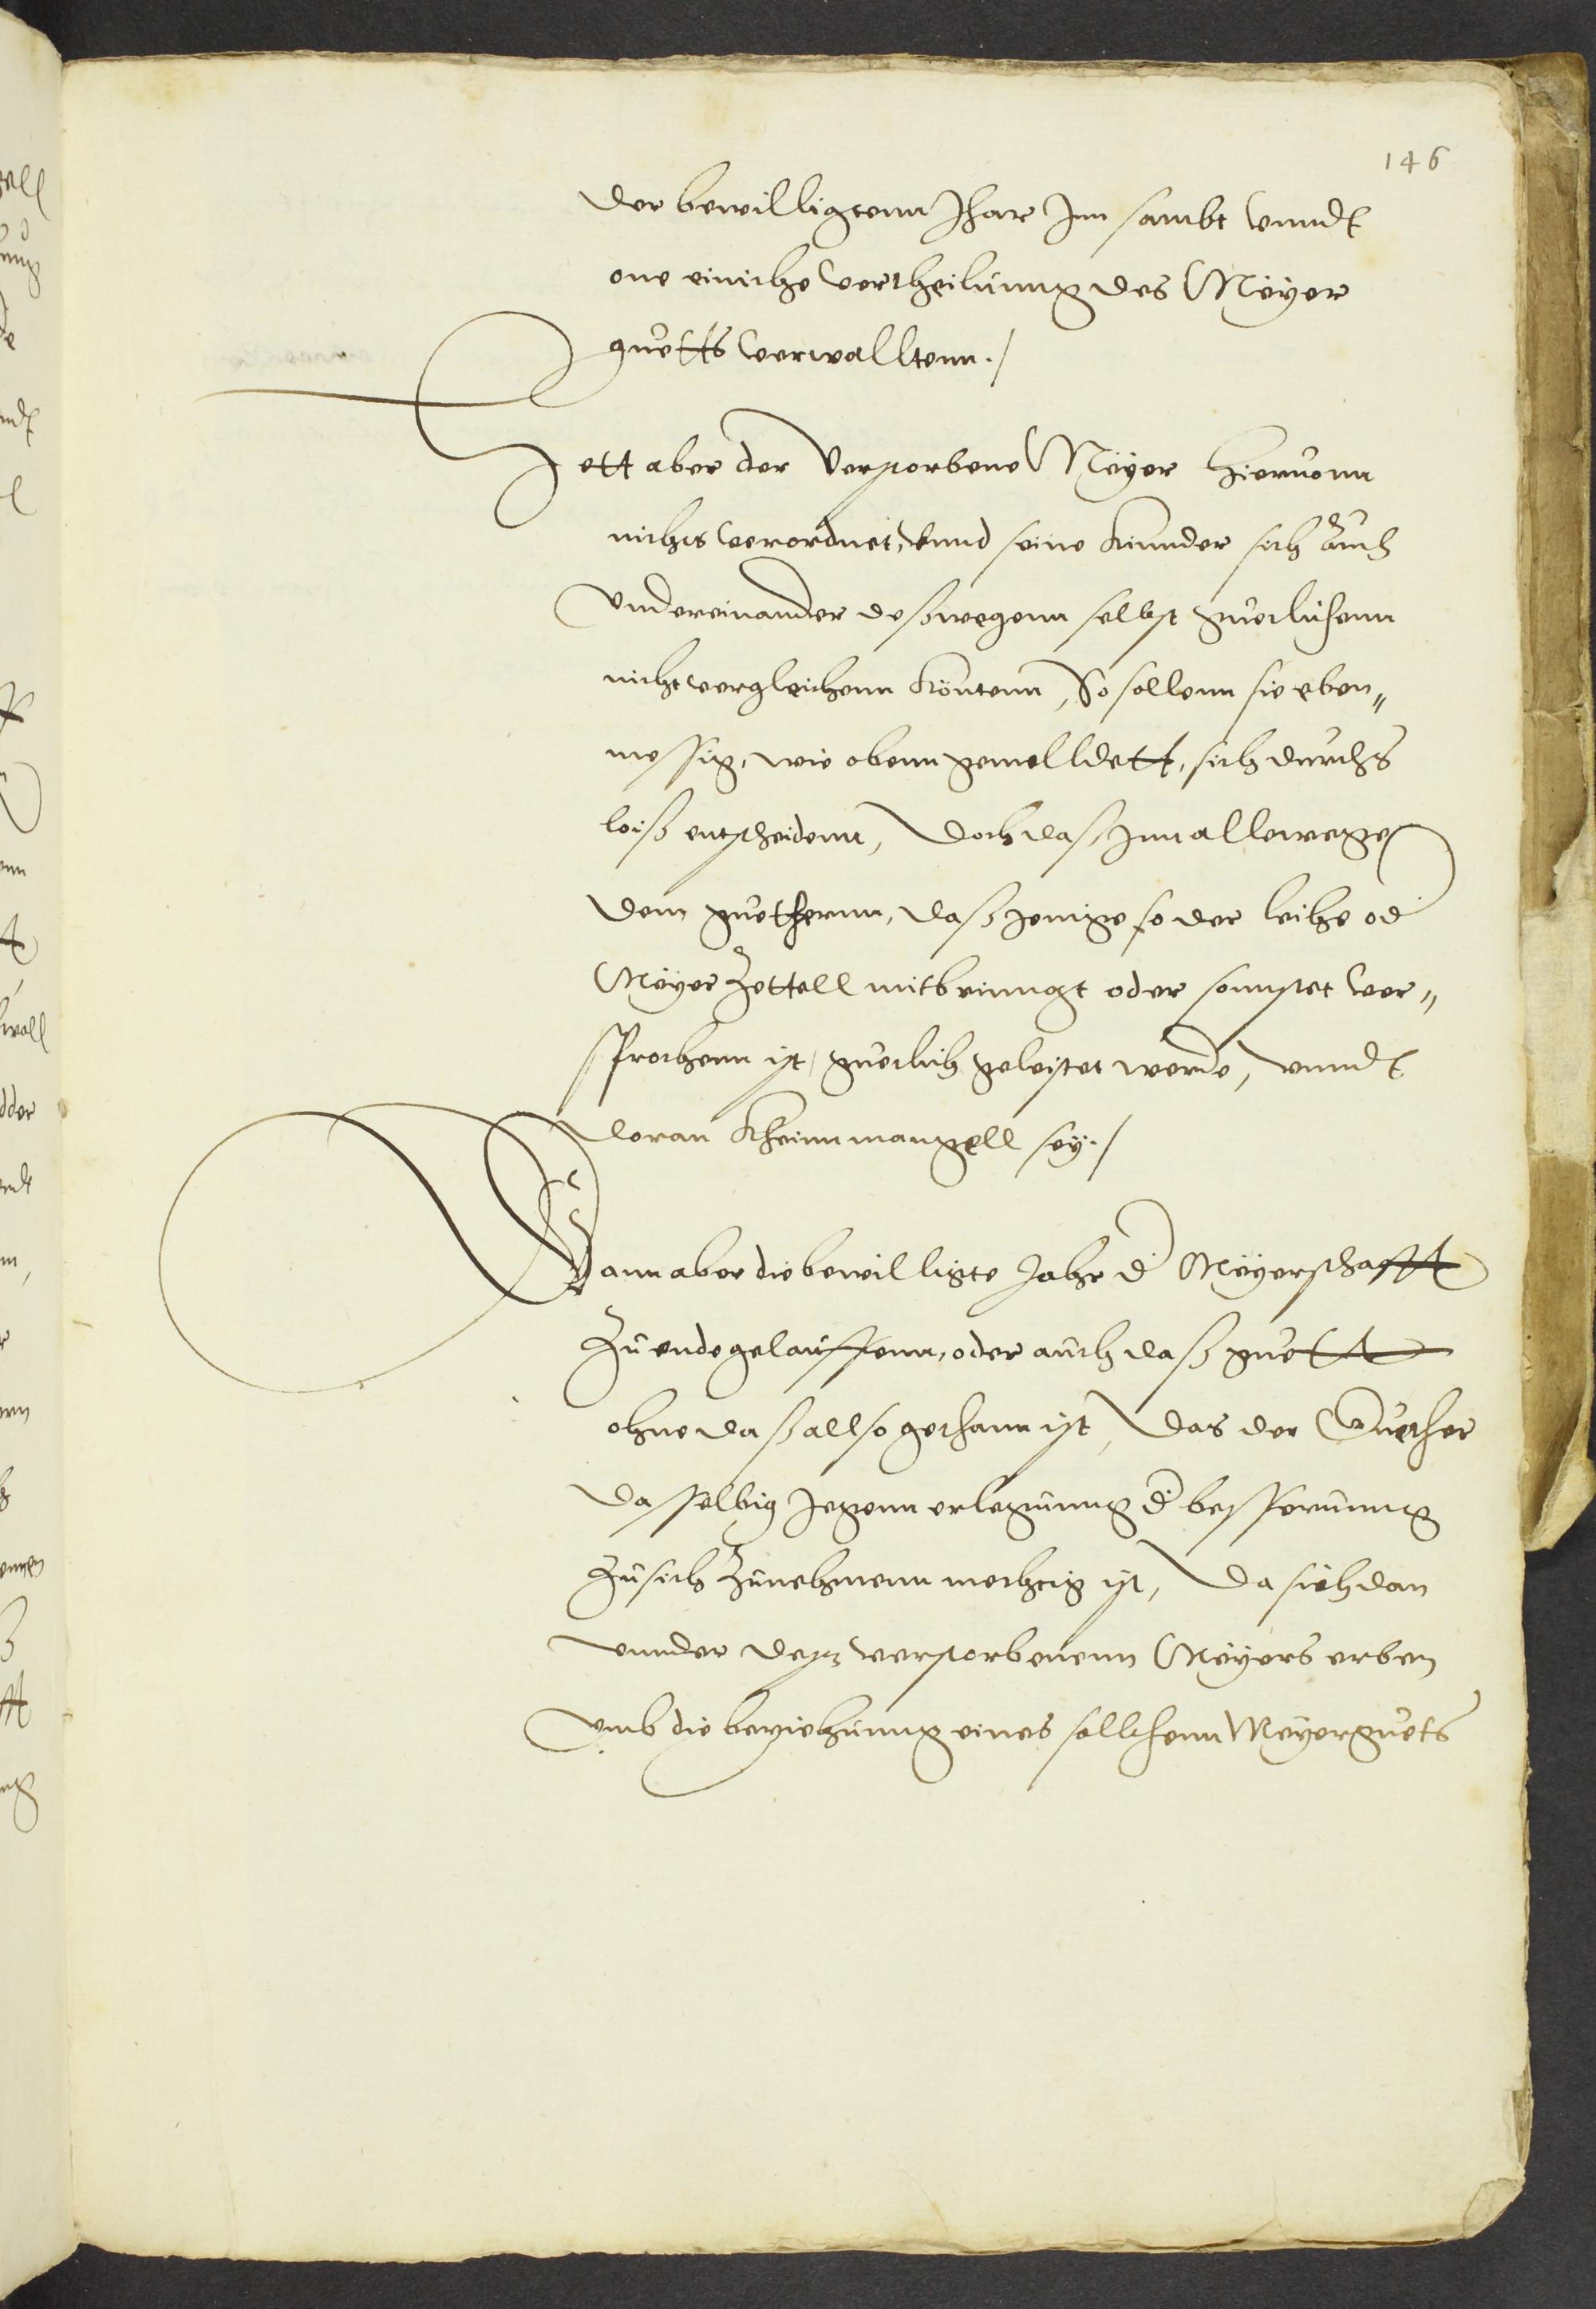 146
der bewilligtenn Jhar Inn sambt vnndt
one einiche vertheilunng des Meyer
guetts verwalltenn./
Hett aber der Verstorbene Meyer hieruonn
nichts verordnet, vnnd seine Kinnder sich auch
vndereinander deßwegenn selbst guetlichenn
nicht vergleichenn köntenn, So sollenn sie eben„
messig, wie obenn gemelldett, sich durchs
loiß entscheidenn, doch daß Inn allewege
dem guethernn, daß Jenige so der leihe od
Meyer Zettell mitbrinngt oder sonnstet ver„
sprochenn ist, guetlich geleistet werde, vnndt
doran kheinn mangell sey./
Wann aber die bewilligte Jahr d Meyerschafft
zu ende gelauffenn, oder auch daß guett
ohne daß allso gethann ist, das der Guether
dasselbig Jegenn erlegunng d besserunng
zu sich zunehmenn mechtig ist, da sich dan
vnnder deß verstorbenenn Meyers erben
vmb die beziehunng eines sollchenn Meyerguets